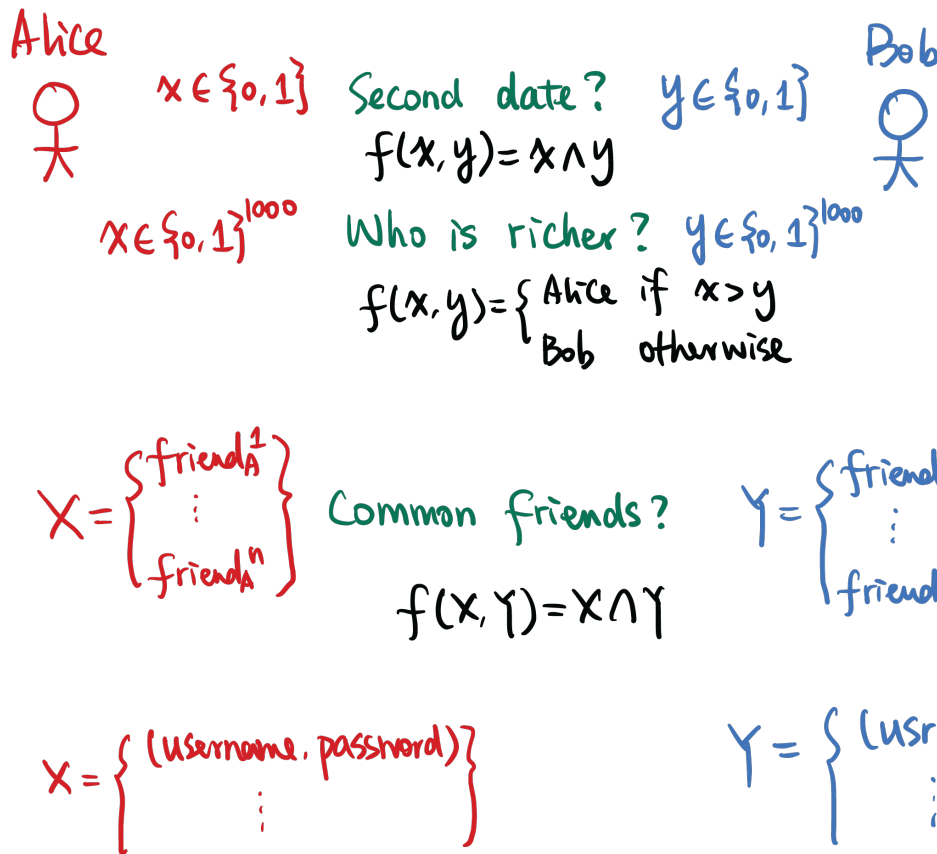 Alice
Bob
x ∈ {0,1} Second date? y ∈ {0,1}
f(x,y) = x ∧ y
x ∈ {0,1}^1000 Who is richer? y ∈ {0,1}^1000
f(x,y) = { Alice if x > y
Bob otherwise
X = { friend_A^1 ⋮ friend_A^n }
Common friends?
Y = { friend ⋮ friend
f(X,Y) = X ∩ Y
X = { (username, password) ⋮ }
Y = { (usr ⋮